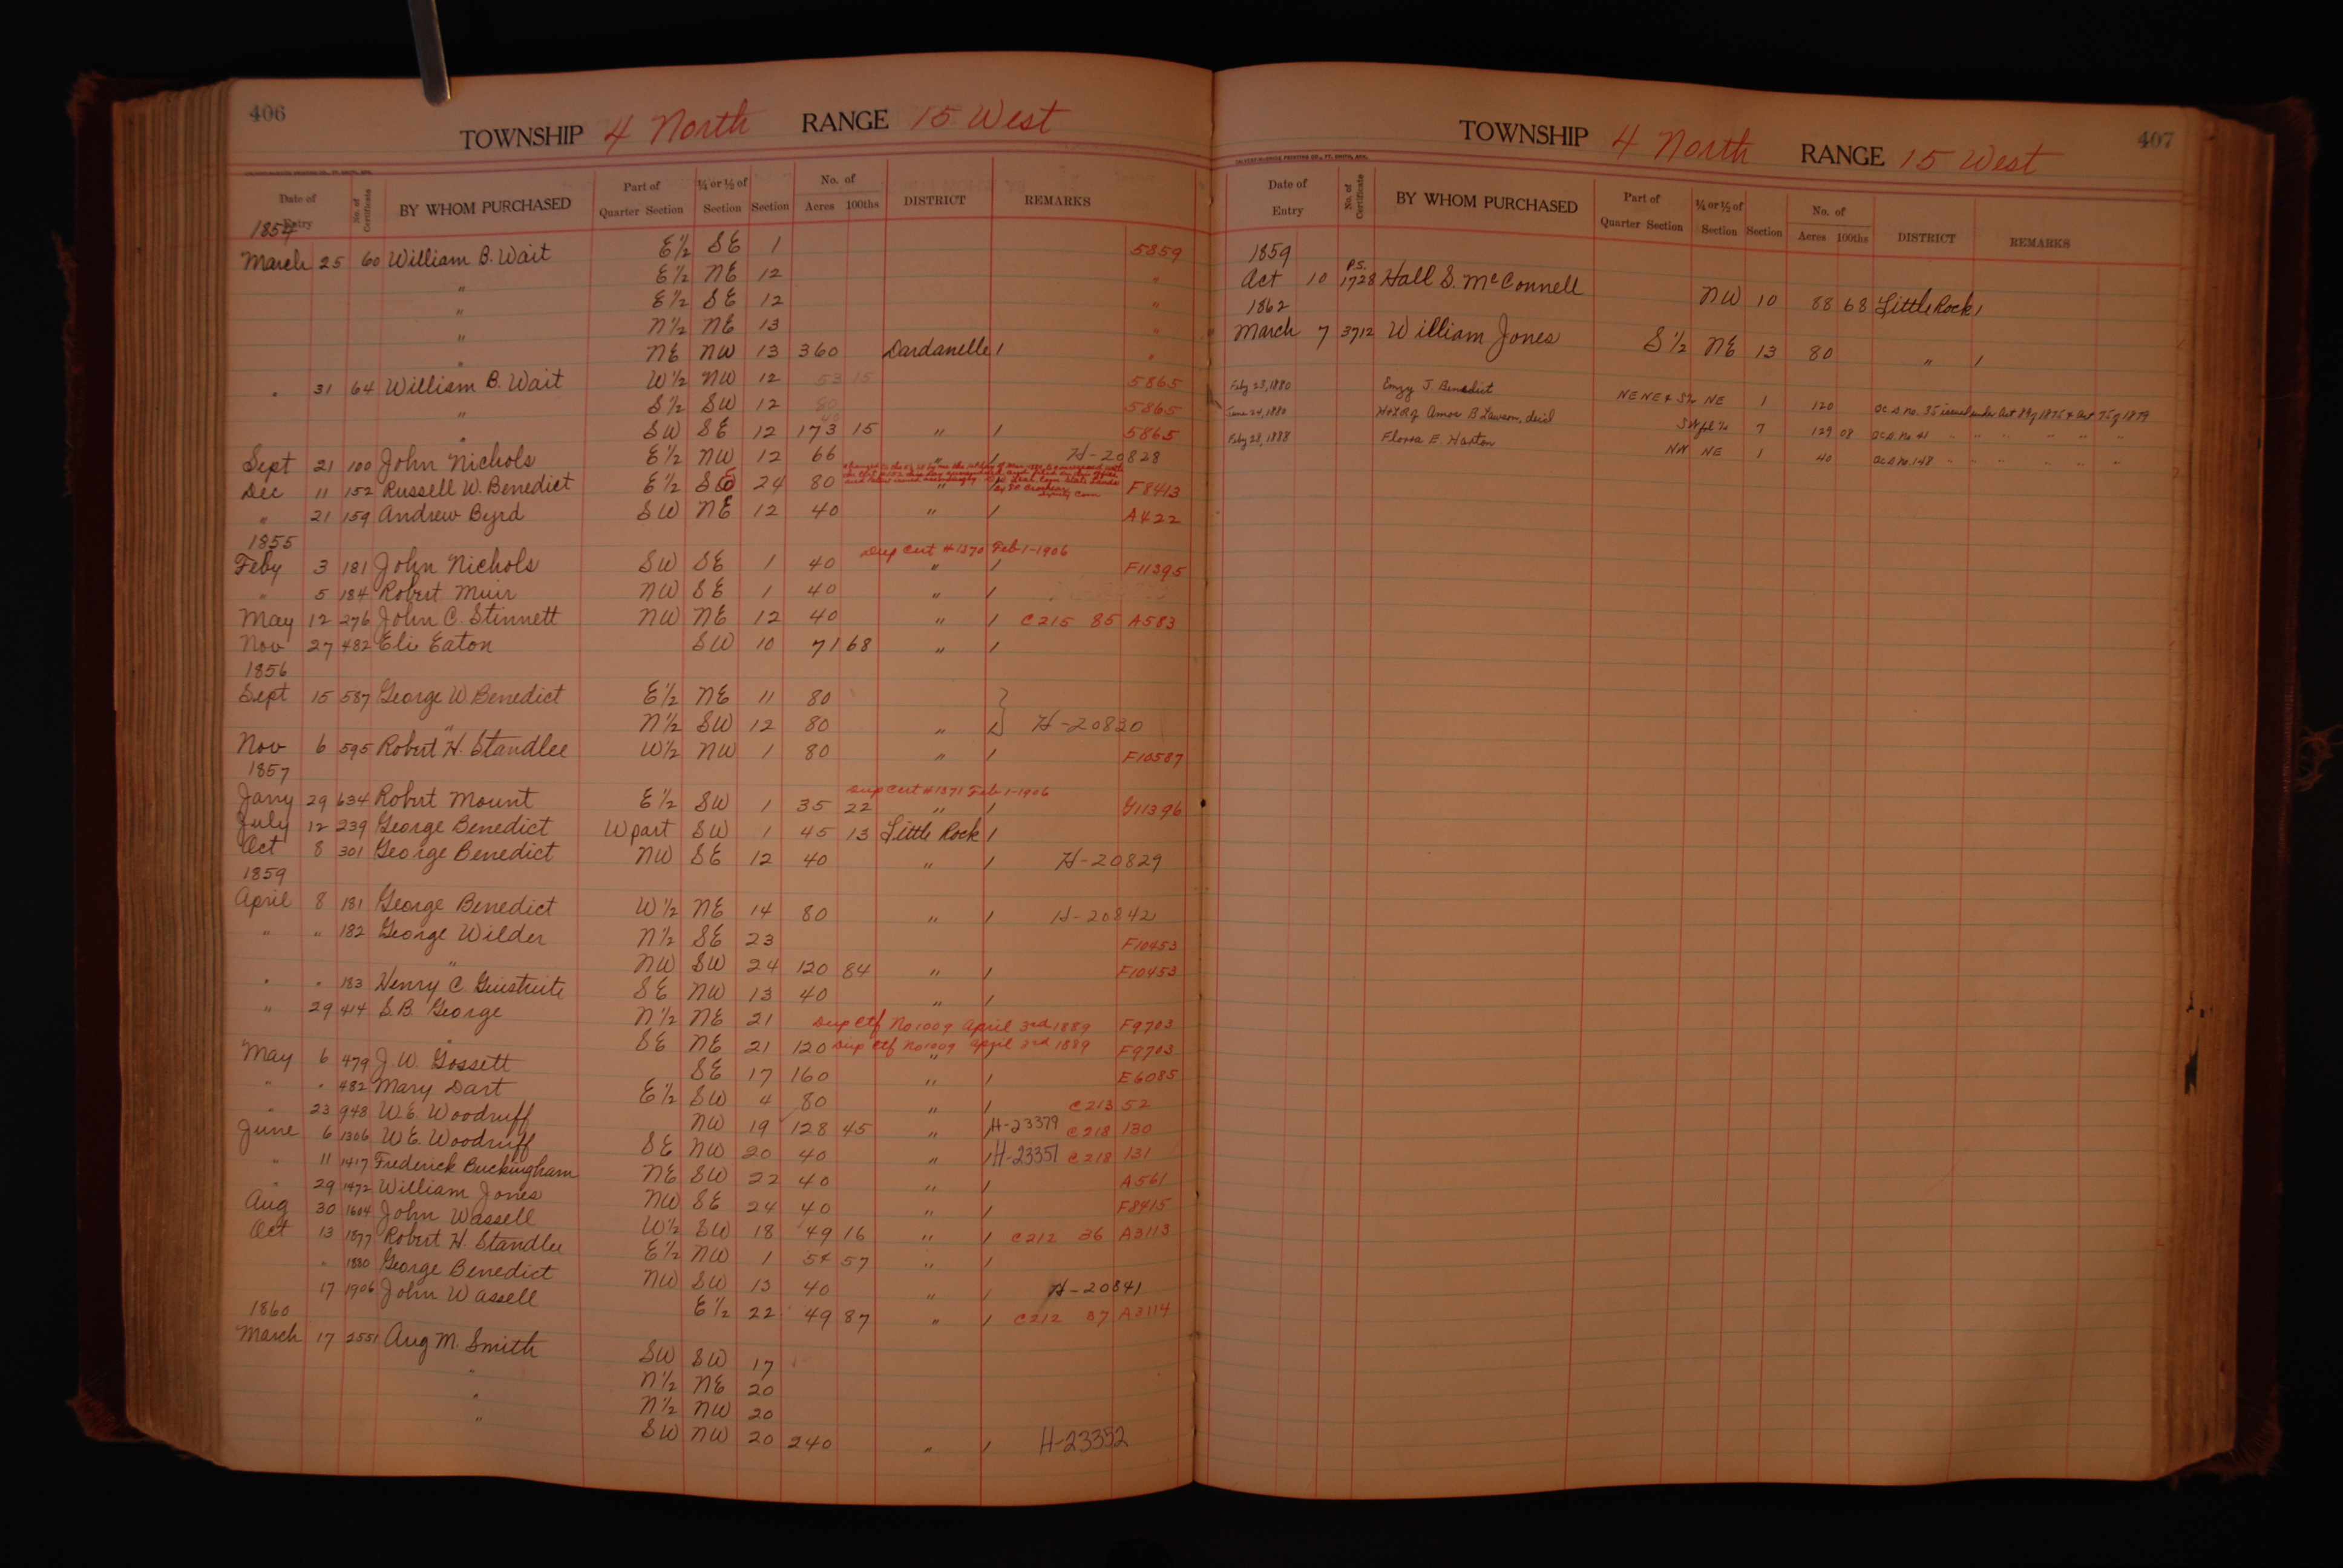 406
TOWNSHIP 4 North RANGE 15 West
CALVERT-McBRIDE PRINTING CO., FT. SMITH, ARK.
Date of Entry No. of Certificate BY WHOM PURCHASED Part of Quarter Section ¼ or ½ of Section Section No. of Acres 100ths DISTRICT REMARKS
1854
March 25 60 William B. Wait E½ SE 1 5859
" E½ NE 12 "
" E½ SE 12 "
" N½ NE 13 "
" NE NW 13 360 Dardanelle / "
" 31 64 William B. Wait W½ NW 12 53 15 5865
" S½ SW 12 80 5865
" SW SE 12 40 173 15 " / 5865
Sept 21 100 John Nichols E½ NW 12 66 " / H-20828
Dec 11 152 Russell W. Benedict E½ SE 24 80 " / F8413
" 21 159 Andrew Byrd SW NE 12 40 " / A422
1855
Dup Cert #1370 Feb-1-1906
Feby 3 181 John Nichols SW SE 1 40 " / F11395
" 5 184 Robert Muir NW SE 1 40 " /
May 12 276 John C. Stinnett NW NE 12 40 " / C215 85 A583
Nov 27 482 Eli Eaton SW 10 71 68 " /
1856
Sept 15 587 George W. Benedict E½ NE 11 80
" N½ SW 12 80 " / H-20830
Nov 6 595 Robert H. Standlee W½ NW 1 80 " / F10587
1857
Dup Cert #1371 Feb 1-1906
Jany 29 634 Robert Mount E½ SW 1 35 22 " / G11396
July 12 239 George Benedict W part SW 1 45 13 Little Rock /
Oct 8 301 George Benedict NW SE 12 40 " / H-20829
1859
April 8 181 George Benedict W½ NE 14 80 " / H-20842
" " 182 George Wilder N½ SE 23 F10453
" NW SW 24 120 84 " / F10453
" " 183 Henry C. SE NW 13 40 " /
" 29 414 S.B. George N½ NE 21 Dup Ctf No 1009 April 3rd 1889 F9703
" SE NE 21 120 Dup Ctf No 1009 April 3rd 1889 " F9703
May 6 479 J. W. Gossett SE 17 160 " / E6085
" " 482 Mary Dart E½ SW 4 80 " / C213 52
" 23 948 W.E. Woodruff NW 19 128 45 " / H-23379 C218 130
June 6 1306 W.E. Woodruff SE NW 20 40 " / H-23351 C218 131
" 11 1417 Frederick Buckingham NE SW 22 40 " / A561
" 29 1472 William Jones NW SE 24 40 " / F8415
Aug 30 1604 John Wassell W½ SW 18 49 16 " / C212 36 A3113
Oct 13 1877 Robert H. Standlee E½ NW 1 54 57 " /
" 1880 George Benedict NW SW 13 40 " / H-20841
17 1906 John Wassell E½ 22 49 87 " / C212 37 A3114
1860
March 17 2551 Aug M. Smith SW SW 17
" N½ NE 20
" N½ NW 20
" SW NW 20 240 " / H-23352
407
TOWNSHIP 4 North RANGE 15 West
CALVERT-McBRIDE PRINTING CO., FT. SMITH, ARK.
Date of Entry No. of Certificate BY WHOM PURCHASED Part of Quarter Section ¼ or ½ of Section Section No. of Acres 100ths DISTRICT REMARKS
1859
Oct 10 P.S. 1728 Hall S. McConnell NW 10 88 68 Little Rock /
1862
March 7 3712 William Jones S½ NE 13 80 " /
Feby 23, 1880 Emzy J. Benedict NE NE & S½ NE 1 120 Dc.D. No. 35 issued under Act 89 of 1875 & Act 75 of 1879
June 24, 1880 Amos B Lawson, decd SW frl ¼ 7 129 08 Dc.D. No. 41 " " " " " "
Feby 28, 1888 Flora E. Harton NW NE 1 40 Dc.D. No. 148 " " " " " "